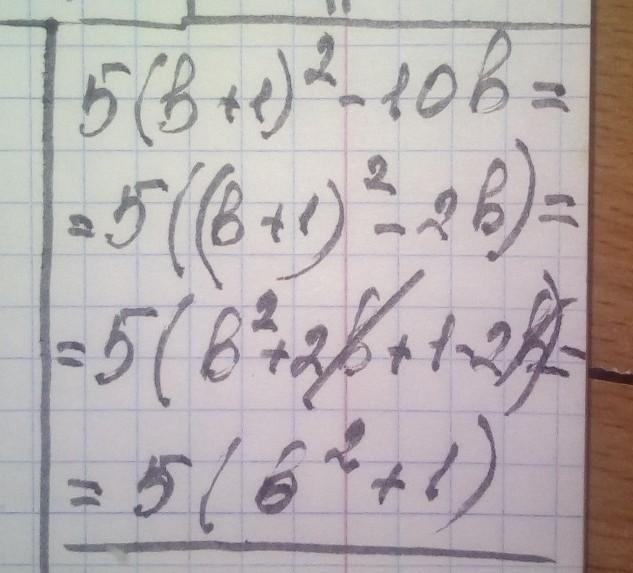 5(b+1)²-10b=
=5((b+1)²-2b)=
=5(b²+2b+1-2b)=
=5(b²+1)